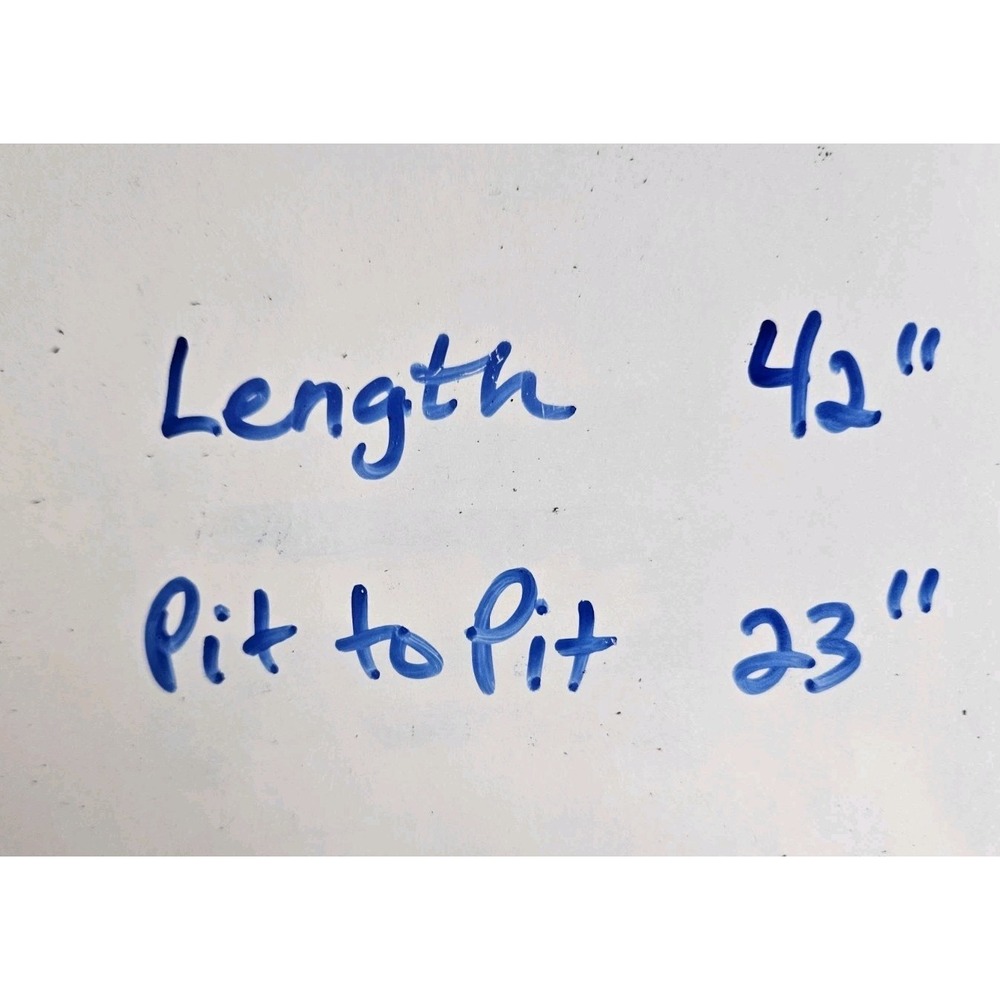 Length 42"
Pit to Pit 23"